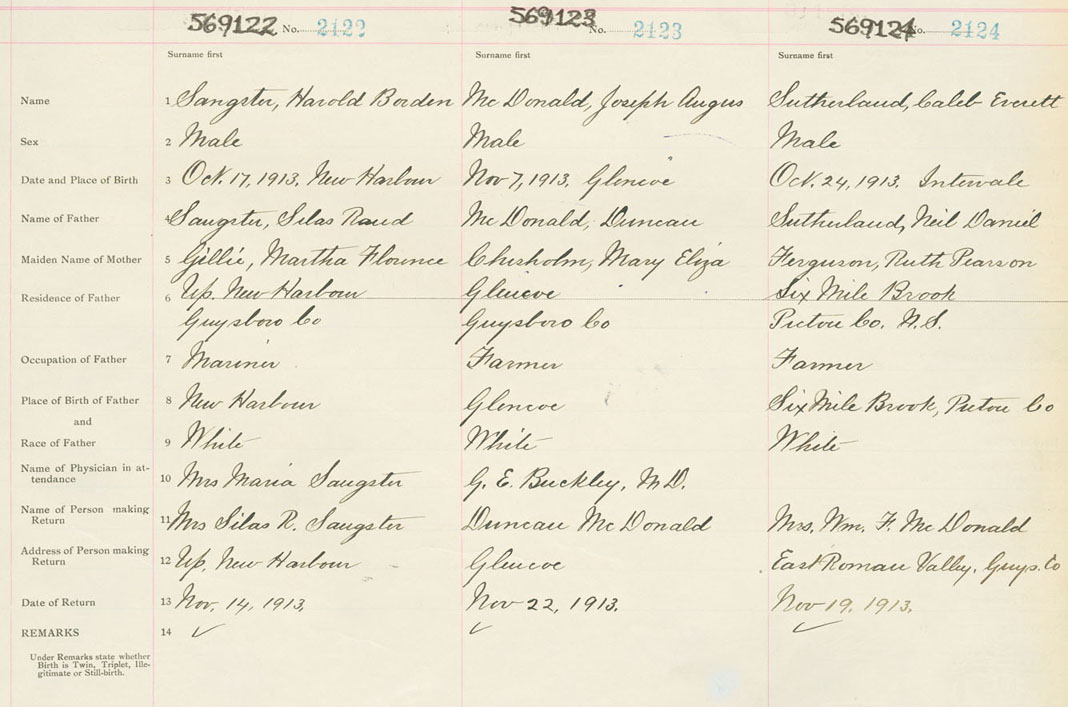 569122 No. 2122 569123 No. 2123 569124 No. 2124
Surname first Surname first Surname first
Name 1 Sangster, Harold Borden McDonald, Joseph Angus Sutherland, Caleb Everett
Sex 2 Male Male Male
Date and Place of Birth 3 Oct. 17, 1913. New Harbour Nov 7, 1913. Glencoe Oct. 24, 1913. Intervale
Name of Father 4 Sangster, Silas Rand McDonald, Duncan Sutherland, Neil Daniel
Maiden Name of Mother 5 Gillie, Martha Florence Chisholm, Mary Eliza Ferguson, Ruth Pearson
Residence of Father 6 Up. New Harbour Glencoe Six Mile Brook
Guysboro Co Guysboro Co Pictou Co. N.S.
Occupation of Father 7 Mariner Farmer Farmer
Place of Birth of Father 8 New Harbour Glencoe Six Mile Brook, Pictou Co
and
Race of Father 9 White White White
Name of Physician in at-
tendance 10 Mrs Maria Sangster G. E. Buckley, M.D.
Name of Person making
Return 11 Mrs Silas R. Sangster Duncan McDonald Mrs. Wm. F. McDonald
Address of Person making
Return 12 Up. New Harbour Glencoe East Roman Valley, Guys. Co
Date of Return 13 Nov. 14, 1913. Nov 22, 1913. Nov 19, 1913.
REMARKS 14 ✓ ✓ ✓
Under Remarks state whether
Birth is Twin, Triplet, Ille-
gitimate or Still-birth.